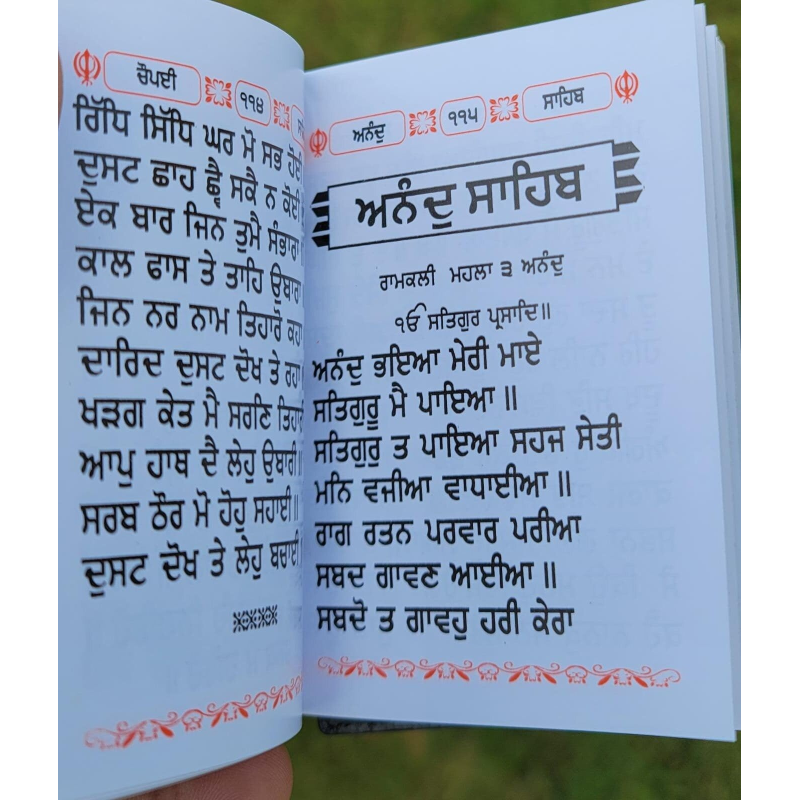 ਚੌਪਈ
੧੧੪
ਰਿੱਧਿ ਸਿੱਧਿ ਘਰ ਮੋ ਸਭ ਹੋਈ
ਦੁਸਟ ਛਾਹ ਛ੍ਵੈ ਸਕੈ ਨ ਕੋਈ
ਏਕ ਬਾਰ ਜਿਨ ਤੁਮੈ ਸੰਭਾਰਾ
ਕਾਲ ਫਾਸ ਤੇ ਤਾਹਿ ਉਬਾਰਾ
ਜਿਨ ਨਰ ਨਾਮ ਤਿਹਾਰੋ ਕਹਾ
ਦਾਰਿਦ ਦੁਸਟ ਦੋਖ ਤੇ ਰਹਾ
ਖੜਗ ਕੇਤ ਮੈ ਸਰਣਿ ਤਿਹਾਰੀ
ਆਪੁ ਹਾਥ ਦੈ ਲੇਹੁ ਉਬਾਰੀ॥
ਸਰਬ ਠੌਰ ਮੋ ਹੋਹੁ ਸਹਾਈ॥
ਦੁਸਟ ਦੋਖ ਤੇ ਲੇਹੁ ਬਚਾਈ
ਅਨੰਦੁ
੧੧੫
ਸਾਹਿਬ
ਅਨੰਦੁ ਸਾਹਿਬ
ਰਾਮਕਲੀ ਮਹਲਾ ੩ ਅਨੰਦੁ
ੴ ਸਤਿਗੁਰ ਪ੍ਰਸਾਦਿ॥
ਅਨੰਦੁ ਭਇਆ ਮੇਰੀ ਮਾਏ
ਸਤਿਗੁਰੂ ਮੈ ਪਾਇਆ ॥
ਸਤਿਗੁਰੁ ਤ ਪਾਇਆ ਸਹਜ ਸੇਤੀ
ਮਨਿ ਵਜੀਆ ਵਾਧਾਈਆ ॥
ਰਾਗ ਰਤਨ ਪਰਵਾਰ ਪਰੀਆ
ਸਬਦ ਗਾਵਣ ਆਈਆ ॥
ਸਬਦੋ ਤ ਗਾਵਹੁ ਹਰੀ ਕੇਰਾ